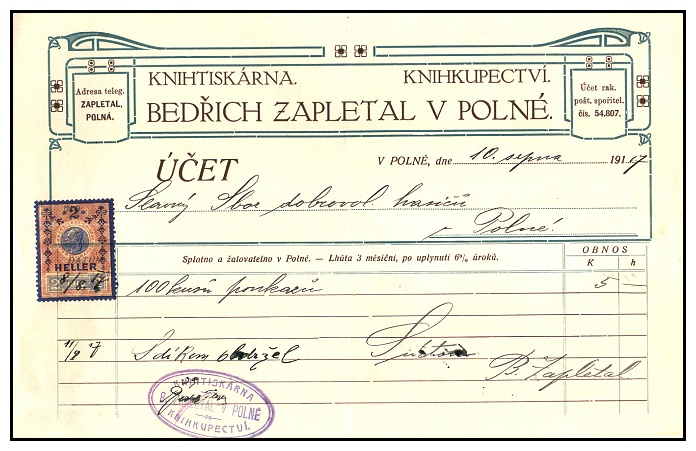 KNIHTISKÁRNA. KNIHKUPECTVÍ.
BEDŘICH ZAPLETAL V POLNÉ.
Adresa teleg.
ZAPLETAL,
POLNÁ.
Účet rak.
pošt. spořitel.
čís. 54.807.
ÚČET
V POLNÉ, dne 10. srpna 1917
Slavný Sbor dobrovol. hasičů
v Polné.
2
HELLER
Splatno a žalovatelno v Polné. — Lhůta 3 měsíční, po uplynutí 6% úroků.
OBNOS
K h
DATUM
8/8 17
100 kusů poukazů 5 —
11/9 17 S díkem obdržel
B. Zapletal
KNIHTISKÁRNA
B. ZAPLETAL V POLNÉ
KNIHKUPECTVÍ.